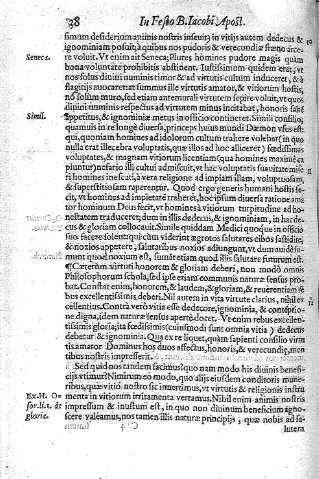 38 In Festo B. Iacobi Apost.
simum desiderium animis nostris inseuit, in vitijs autem dedecus &
ignominiam posuit, à quibus nos pudoris & verecundiæ fræno arce-
Seneca. re voluit. Vt enim ait Seneca, Plures homines pudore magis quàm
bona voluntate prohibitis abstinent. Iustissimum quidem erat, vt
nos solus diuini numinis timor ad virtutis cultum induceret, & à
flagitijs auocaret at summus ille virtutis amator, & vitiorum hostis,
nō solùm muro, sed etiam antemurali virtutem sepire voluit, vt quos
diuini numinis respectus ad virtutem minus incitabat, honoris saltē
Simil. appetitus, & ignominiæ metus in officio contineret. Simili consilio,
quamuis in re longè diuersa, princeps huius mundi Dæmon vsus est:
qui, quoniam homines ad idolorum cultum trahere volebat (in quo
nulla erat illecebra voluptatis, quæ illos ad hoc alliceret) fœdissimas
voluptates, & magnam vitiorum licentiam (qua homines maximè ca
piuntur) nefario illi cultui admiscuit, vt hac voluptatis suauitate mise
ri homines inescati, à vera religione ad impiam illam, voluptuosam,
& superstitiosam raperentur. Quod ergo generis humani hostis fe-
cit, vt homines ad impietatē traheret, hoc ipsum diuersa ratione ama
tor hominum Deus fecit, vt homines à vitiorum turpitudine ad ho-
nestatem traduceret; dum in illis dedecus, & ignominiam, in hac de-
cus & gloriam collocauit. Simile quiddam Medici quoque in officio
suo facere solent: qui cùm viderint ægrotos salutares cibos fastidire,
& noxios appetere, salutaribus noxios adiungunt, vt dum auidè su-
munt quod noxium est, sumāt etiam quod illis salutare futurum est.
¶ Cæterùm virtuti honorem & gloriam deberi, non modò omnis
Philosophorum schola, sed ipse etiam communis naturæ sensus pro-
bat. Constat enim, honorem, & laudem, & gloriam, & reuerentiam re
bus excellentissimis deberi. Nil autem in vita virtute clarius, nihil ex
cellentius. Contrà verò vitio esse dedecore, ignominia, & contemptio-
ne digna, idem naturæ sensus apertè docet. Vt enim rebus excellen-
tissimis gloria, ita fœdissimis (cuiusmodi sunt omnia vitia) dedecus
debetur & ignominia. Qua ex re liquet, quàm sapienti consilio virtu
tis amator Dominus hos duos affectus, honoris, & verecundię, men
tibus nostris impresserit.
Sed quid nos tandem facimus? quo nam modo his diuinis benefi-
cijs vtimur? Nimirum eo modo, quo alijs eiusdem conditoris mune-
ribus, quæ vitio nostro sic inuertimus, vt virtutis & religionis instru
Ex. H. O- menta in vitiorum irritamenta vertamus. Nihil enim animis nostris
sor. li. 1. de impressum & inustum est, in quo non diuinum beneficium agno-
glorie. scere valeamus, nos tamen illis naturæ principijs, quæ nobis ad sa-
lutem